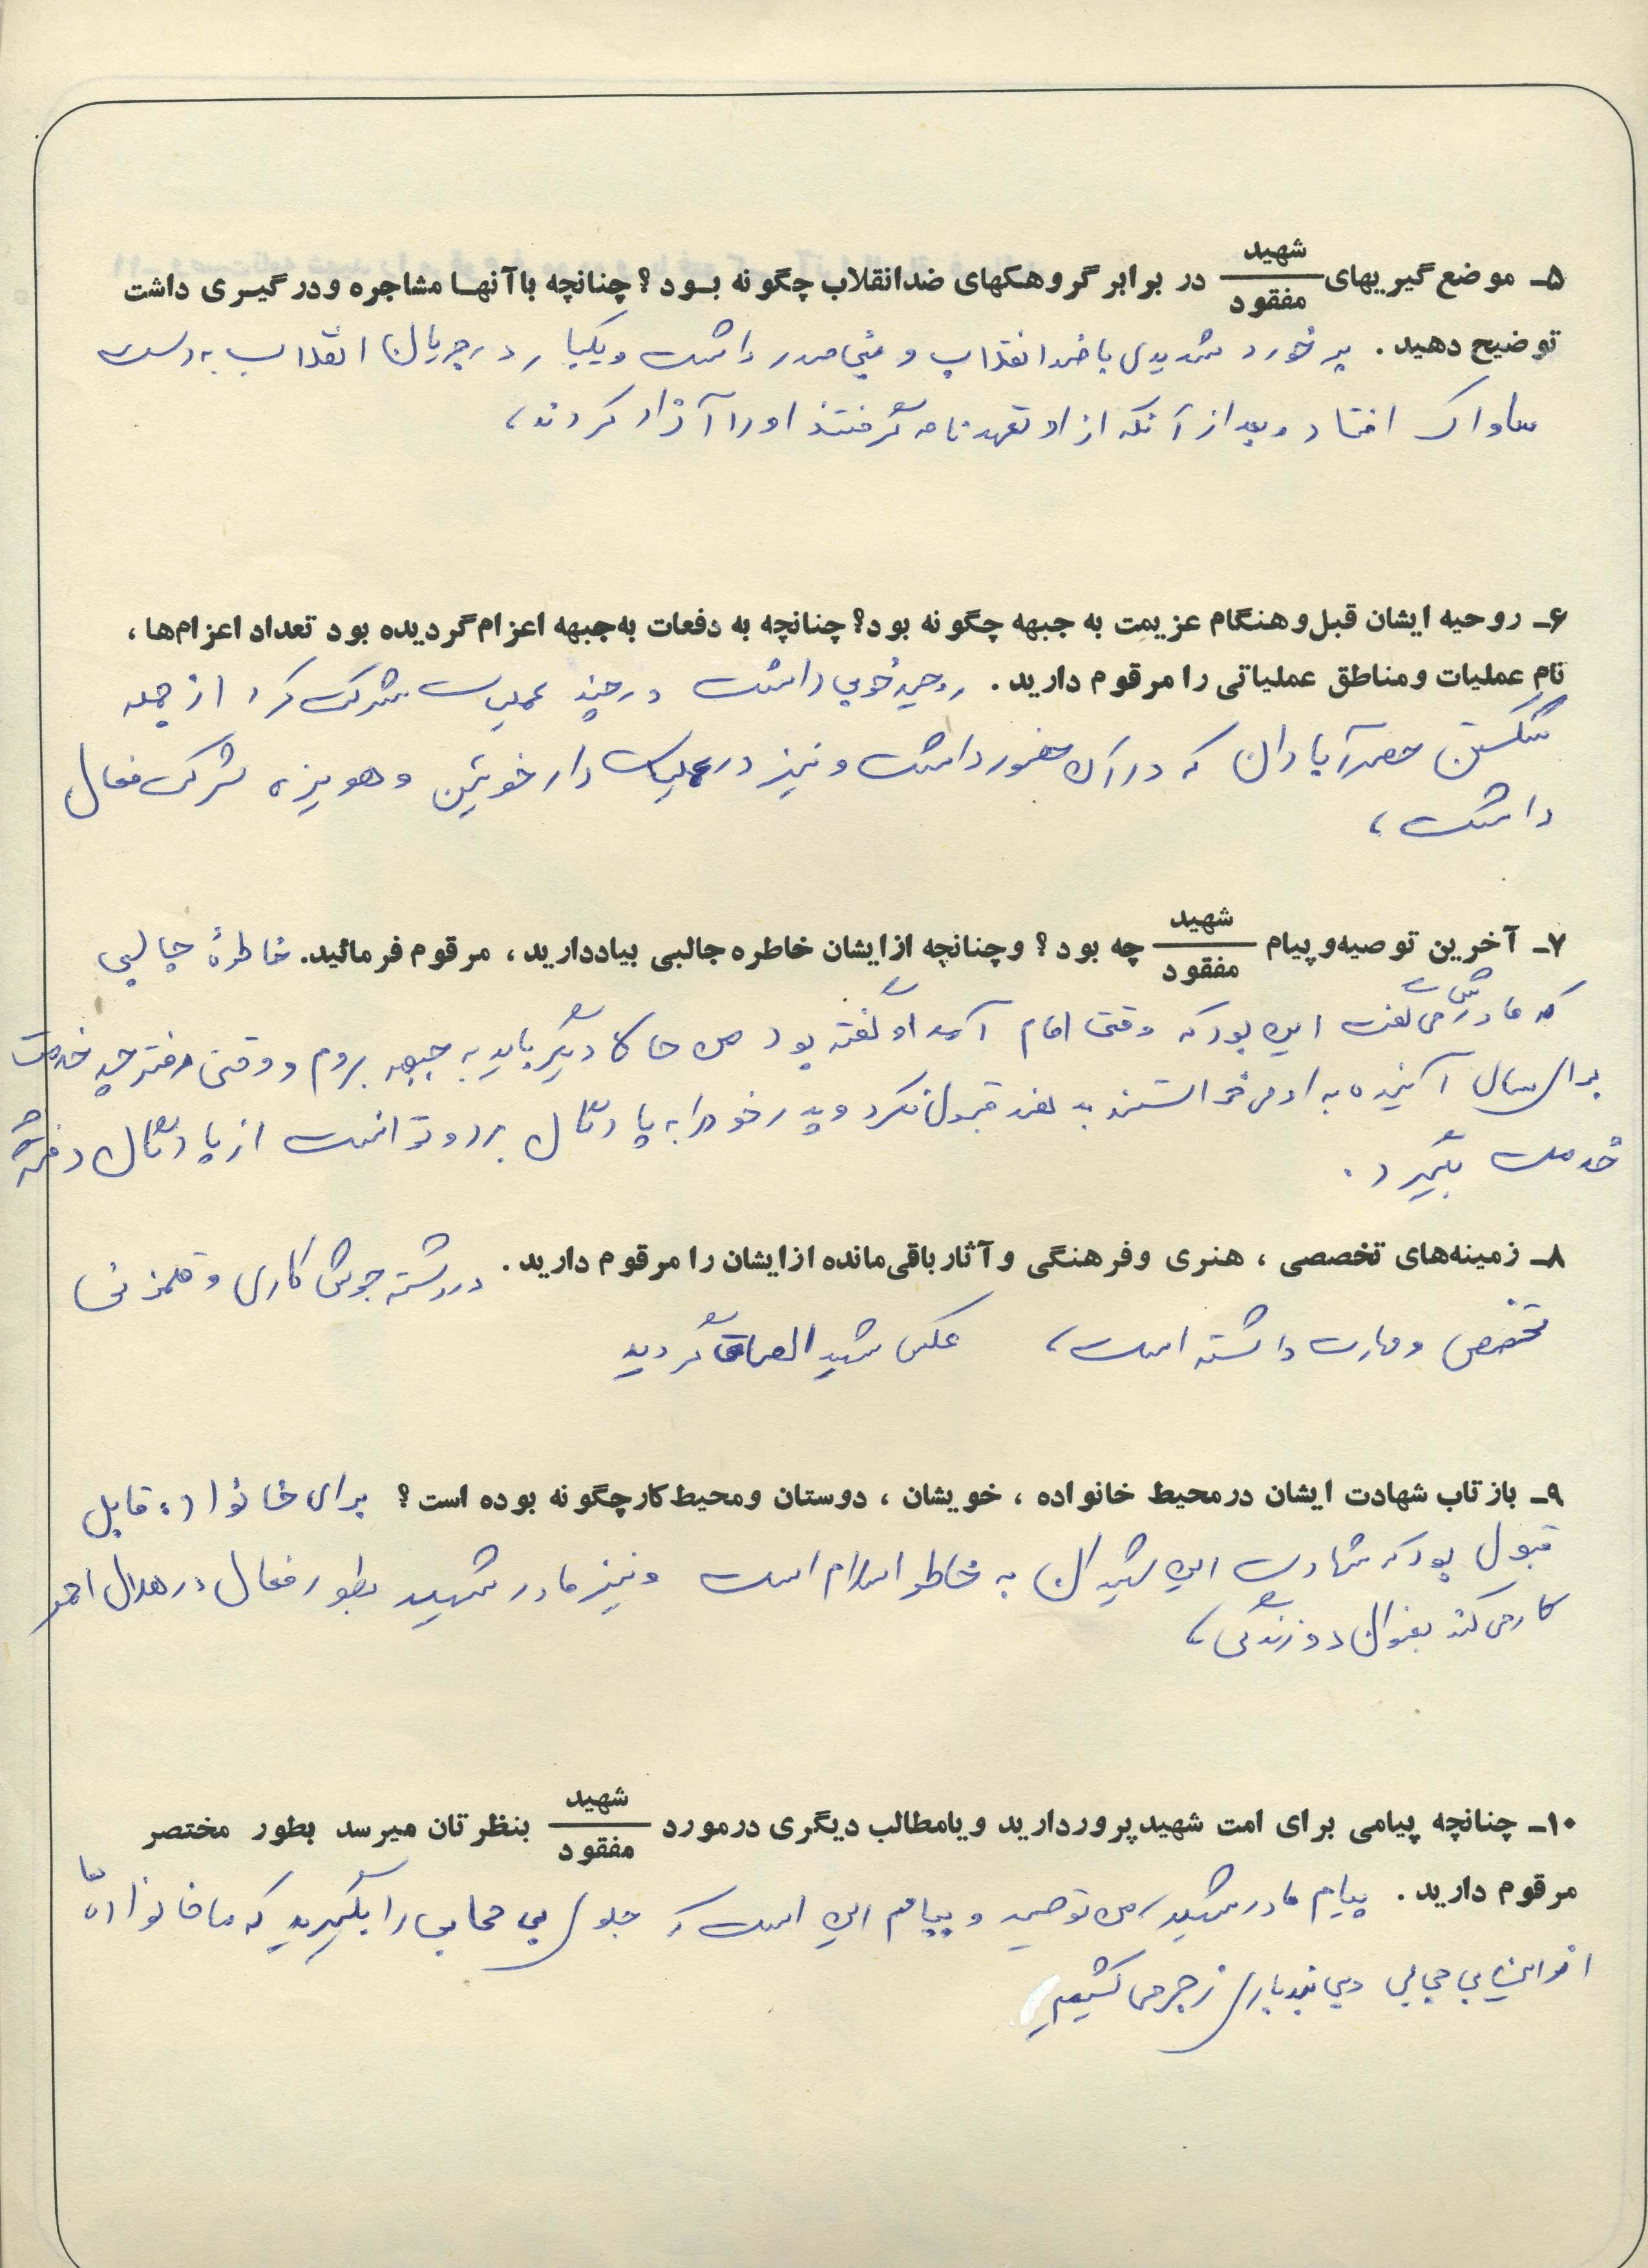 ۵ـ موضع‌گیریهای شهید / مفقود در برابر گروهکهای ضدانقلاب چگونه بود؟ چنانچه با آنها مشاجره و درگیری داشت
توضیح دهید. برخورد شدیدی با ضد انقلاب و بنی صدر داشت و یکبار در جریان انقلاب به دست
ساواک افتاد و بعد از آنکه از او تعهد نامه گرفتند او را آزاد کردند،
۶ـ روحیه ایشان قبل و هنگام عزیمت به جبهه چگونه بود؟ چنانچه به دفعات به جبهه اعزام گردیده بود تعداد اعزام‌ها،
نام عملیات و مناطق عملیاتی را مرقوم دارید. روحیه خوبی داشت در چند عملیات شرکت کرد از جمله
شکستن حصر آبادان که در آن حضور داشت و نیز در عملیات دارخوئین و هویزه شرکت فعال
داشت،
۷ـ آخرین توصیه و پیام شهید / مفقود چه بود؟ و چنانچه از ایشان خاطره جالبی بیاد دارید، مرقوم فرمائید. خاطرهٔ جالبی
که مادرش می گفت این بود که وقتی امام آمد او گفته بود من حالا دیگر باید به جبهه بروم و وقتی دفترچه خدمت
برای سال آینده به او می خواستند بدهند قبول نکرد و پدر خود را به پادگان برد و توانست از پادگان دفترچه
خدمت بگیرد.
۸ـ زمینه‌های تخصصی، هنری و فرهنگی و آثار باقی‌مانده از ایشان را مرقوم دارید. در رشته جوش کاری و قلمزنی
تخصص و مهارت داشته است، عکس شهید الصاق گردید
۹ـ بازتاب شهادت ایشان در محیط خانواده، خویشان، دوستان و محیط کار چگونه بوده است؟ برای خانواده قابل
قبول بود که شهادت این شهیدان به خاطر اسلام است و نیز مادر شهید بطور فعال در هلال احمر
کار می کند بعنوان دوزندگی،
۱۰ـ چنانچه پیامی برای امت شهیدپرور دارید و یا مطالب دیگری در مورد شهید / مفقود بنظرتان میرسد بطور مختصر
مرقوم دارید. پیام مادر شهید، من توصیه و پیامم این است که جلوی بی حجابی را بگیرید که ما خانواده ها
از این بی حجابی و بی بند باری زجر می کشیم